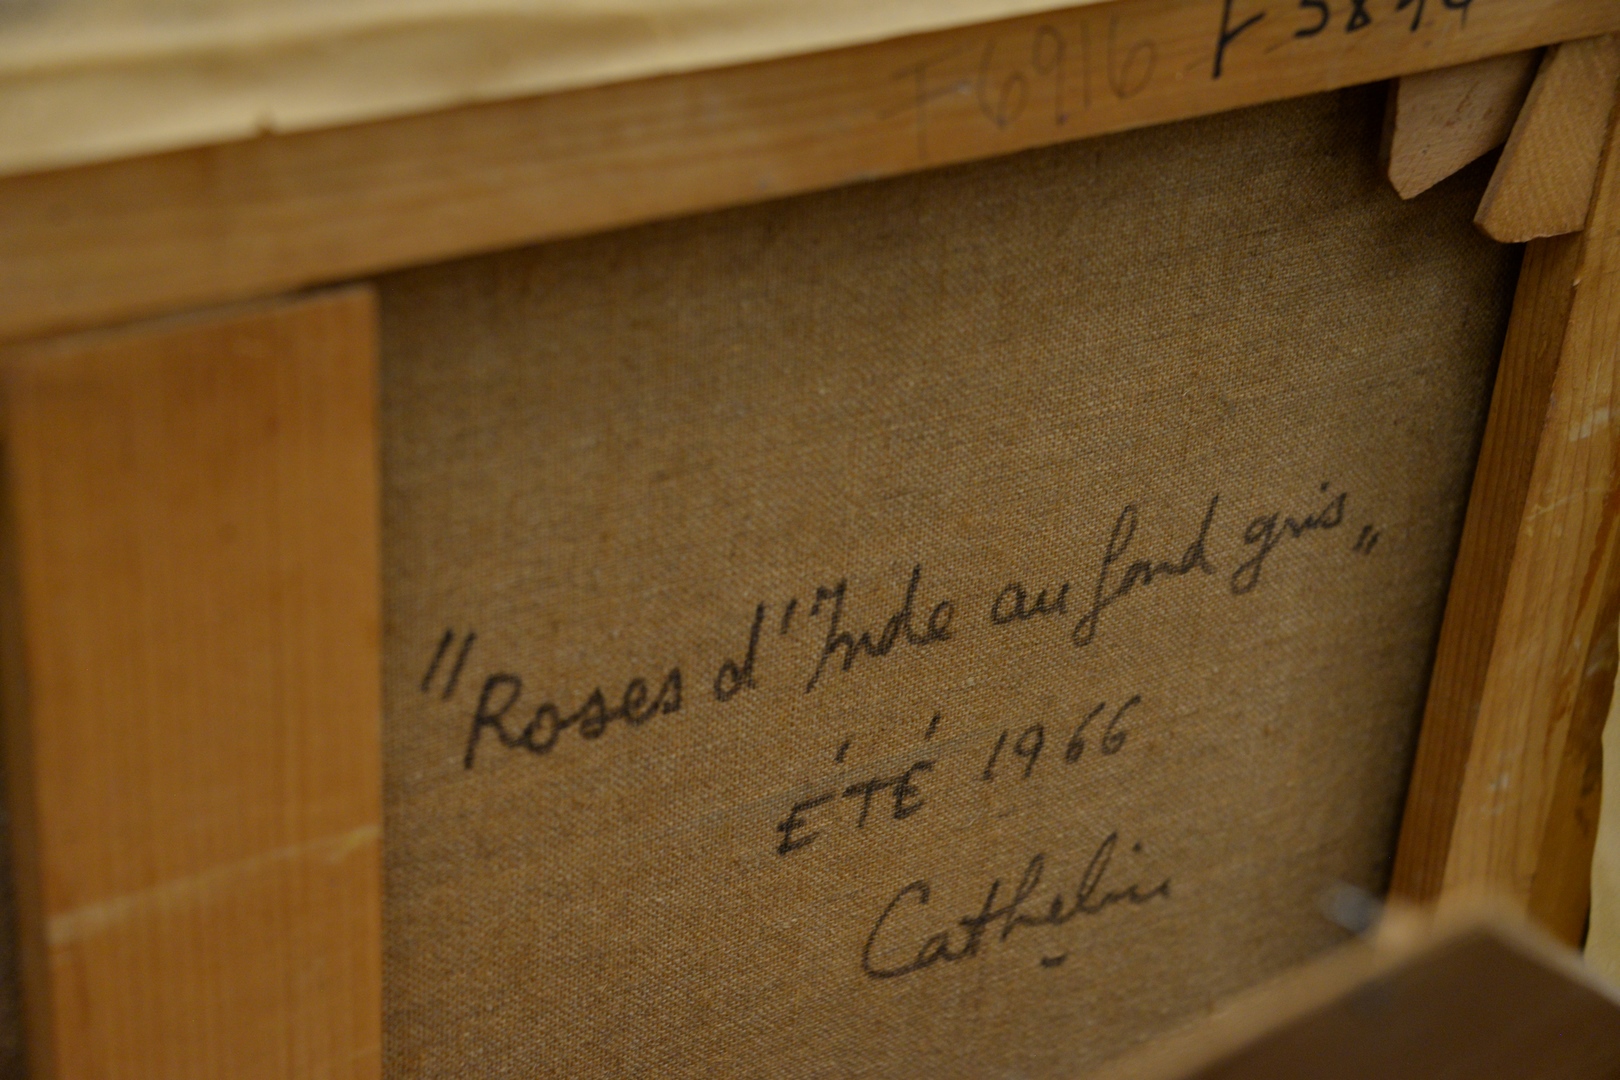 F6916
"Roses d'Inde au fond gris"
ÉTÉ 1966
Cathelin